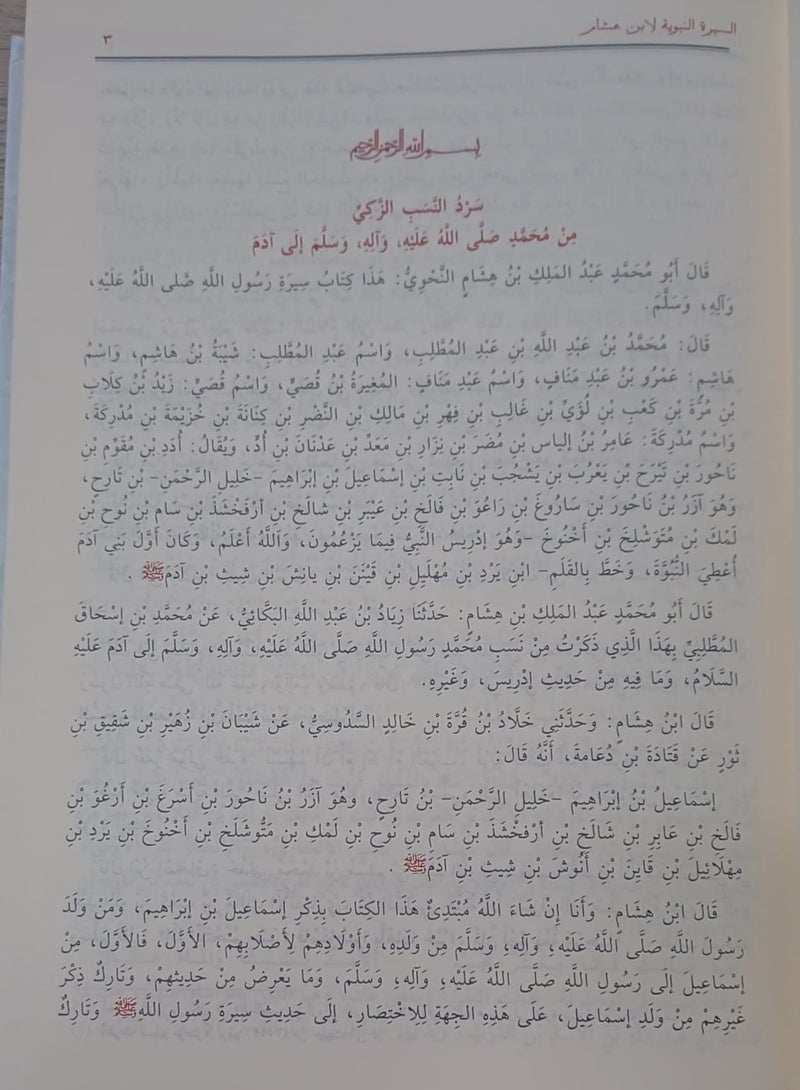 السيرة النبوية لابن هشام
٣
بسم الله الرحمن الرحيم
سَرْدُ النَّسَبِ الزَّكِيِّ
مِنْ مُحَمَّدٍ صَلَّى اللَّهُ عَلَيْهِ، وَآلِهِ، وَسَلَّمَ إِلَى آدَمَ
قَالَ أَبُو مُحَمَّدٍ عَبْدُ المَلِكِ بْنُ هِشَامٍ النَّحْوِيُّ: هَذَا كِتَابُ سِيرَةِ رَسُولِ اللَّهِ صَّلى اللَّهُ عَلَيْهِ،
وَآلِهِ، وَسَلَّمَ.
قَالَ: مُحَمَّدُ بْنُ عَبْدِ اللَّهِ بْنِ عَبْدِ المُطَّلِبِ، وَاسْمُ عَبْدِ المُطَّلِبِ: شَيْبَةُ بْنُ هَاشِمٍ، وَاسْمُ
هَاشِمٍ: عَمْرُو بْنُ عَبْدِ مَنَافٍ، وَاسْمُ عَبْدِ مَنَافٍ: المُغِيرَةُ بْنُ قُصَيٍّ، وَاسْمُ قُصَيٍّ: زَيْدُ بْنُ كِلَابِ
بْنِ مُرَّةَ بْنِ كَعْبِ بْنِ لُؤَيِّ بْنِ غَالِبِ بْنِ فِهْرِ بْنِ مَالِكِ بْنِ النَّضْرِ بْنِ كِنَانَةَ بْنِ خُزَيْمَةَ بْنِ مُدْرِكَةَ،
وَاسْمُ مُدْرِكَةَ: عَامِرُ بْنُ إلياس بْنِ مُضَرَ بْنِ نِزَارِ بْنِ مَعَدِّ بْنِ عَدْنَانَ بْنِ أُدٍّ، وَيُقَالُ: أُدَدِ بْنِ مُقَوِّمِ بْنِ
نَاحُورَ بْنِ تَيْرَحَ بْنِ يَعْرُبَ بْنِ يَشْجُبَ بْنِ نَابِتِ بْنِ إِسْمَاعِيلَ بْنِ إِبْرَاهِيمَ -خَلِيلِ الرَّحْمَنِ- بْنِ تَارِحٍ،
وَهُوَ آزَرُ بْنُ نَاحُورَ بْنِ سَارُوغَ بْنِ رَاعُوَ بْنِ فَالَخِ بْنِ عَيْبَرِ بْنِ شالَخِ بْنِ أَرْفَخْشَذَ بْنِ سَامِ بْنِ نُوحِ بْنِ
لَمْكِ بْنِ مُتَوَشْلِخَ بْنِ أَخْنُوخَ -وَهُوَ إِدْرِيسُ النَّبِيُّ فِيمَا يَزْعُمُونَ، وَاَللَّهُ أَعْلَمُ، وَكَانَ أَوَّلَ بَنِي آدَمَ
أُعْطِيَ النُّبُوَّةَ، وَخَطَّ بِالقَلَمِ- ابْنِ يَرْدِ بْنِ مُهْلَيِلِ بْنِ قَيْنَنَ بْنِ يانِشَ بْنِ شِيثِ بْنِ آدَمَ ﷺ .
قَالَ أَبُو مُحَمَّدٍ عَبْدُ المَلِكِ بْنِ هِشَامٍ: حَدَّثَنَا زِيَادُ بْنُ عَبْدِ اللَّهِ البَكَّائِيُّ، عَنْ مُحَمَّدِ بْنِ إِسْحَاقَ
المُطَّلِبِيِّ بِهَذَا الَّذِي ذَكَرْتُ مِنْ نَسَبِ مُحَمَّدٍ رَسُولِ اللَّهِ صَلَّى اللَّهُ عَلَيْهِ، وَآلِهِ، وَسَلَّمَ إِلَى آدَمَ عَلَيْهِ
السَّلَامُ، وَمَا فِيهِ مِنْ حَدِيثِ إِدْرِيسَ، وَغَيْرِهِ.
قَالَ ابْنُ هِشَامٍ: وَحَدَّثَنِي خَلَّادُ بْنُ قُرَّةَ بْنِ خَالِدٍ السَّدُوسِيُّ، عَنْ شَيْبَانَ بْنِ زُهَيْرِ بْنِ شَقِيقِ بْنِ
ثَوْرٍ عَنْ قَتَادَةَ بْنِ دُعَامةَ، أَنَّهُ قَالَ:
إِسْمَاعِيلُ بْنُ إِبْرَاهِيمَ -خَلِيلِ الرَّحْمَنِ- بْنُ تَارِحٍ، وهُوَ آزَرُ بْنُ نَاحُورَ بْنِ أَسْرَغَ بْنِ أَرْغُوَ بْنِ
فَالَخِ بْنِ عَابِرِ بْنِ شَالَخِ بْنِ أَرْفَخْشَذَ بْنِ سَامِ بْنِ نُوحِ بْنِ لَمْكِ بْنِ مَتُّوشَلَخِ بْنِ أَخْنُوخَ بْنِ يَرْدِ بْنِ
مِهْلَائِيلَ بْنِ قَايِنَ بْنِ أَنُوشَ بْنِ شِيثِ بْنِ آدَمَ ﷺ .
قَالَ ابْنُ هِشَامٍ: وَأَنَا إِنْ شَاءَ اللَّهُ مُبْتَدِئٌ هَذَا الكِتَابَ بِذِكْرِ إِسْمَاعِيلَ بْنِ إِبْرَاهِيمَ، وَمَنْ وَلَدَ
رَسُولَ اللَّهِ صَلَّى اللَّهُ عَلَيْهِ، وَآلِهِ، وَسَلَّمَ مِنْ وَلَدِهِ، وَأَوْلَادِهِمْ لِأَصْلَابِهِمْ، الأَوَّلَ، فَالأَوَّلَ، مِنْ
إِسْمَاعِيلَ إِلَى رَسُولِ اللَّهِ صَلَّى اللَّهُ عَلَيْهِ، وَآلِهِ، وَسَلَّمَ، وَمَا يَعْرِضُ مِنْ حَدِيثِهِمْ، وَتَارِكٌ ذِكْرَ
غَيْرِهِمْ مِنْ وَلَدِ إِسْمَاعِيلَ، عَلَى هَذِهِ الجِهَةِ لِلِاخْتِصَارِ، إِلَى حَدِيثِ سِيرَةِ رَسُولِ اللَّهِ ﷺ وَتَارِكٌ